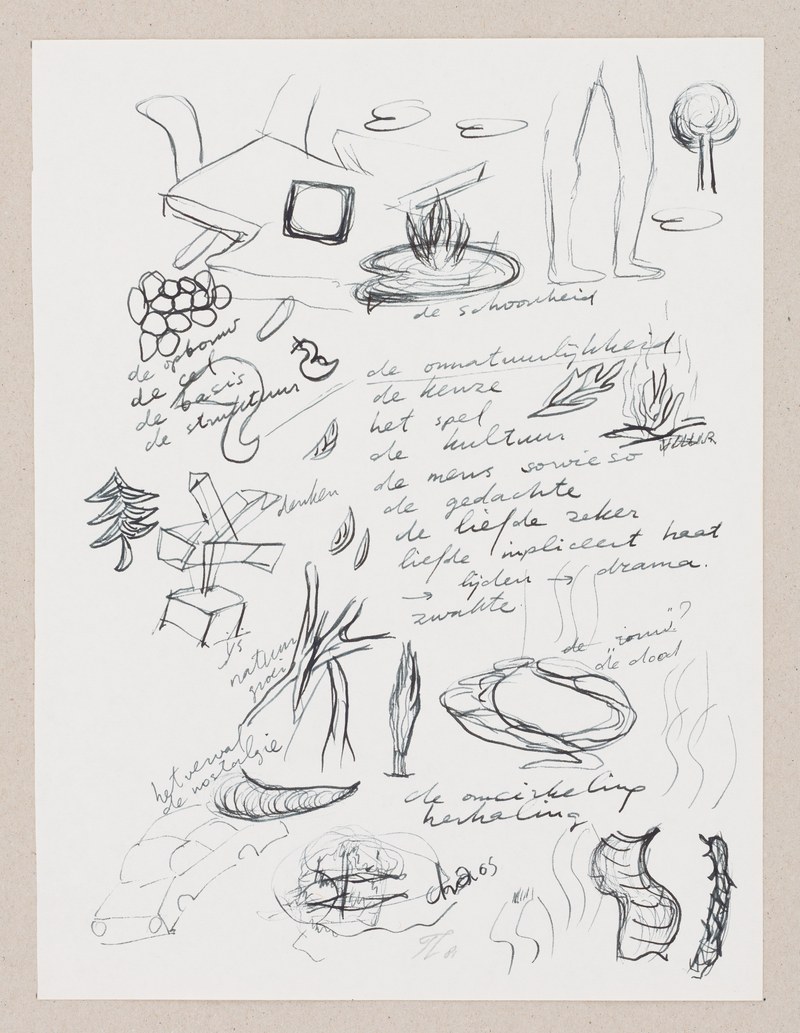 de schoonheid
de opbouw
de cel
de basis
de struktuur
de onnatuurlijkheid
de keuze
het spel
de kultuur
de mens sowieso
de gedachte
de liefde zeker
liefde impliceert haat
→ lijden → drama.
zwakte
VUUR
denken
ijs
natuur
groei
de "ionu."?
de dood
het verval
de nostalgie
de omcirkeling
herhaling
chaos